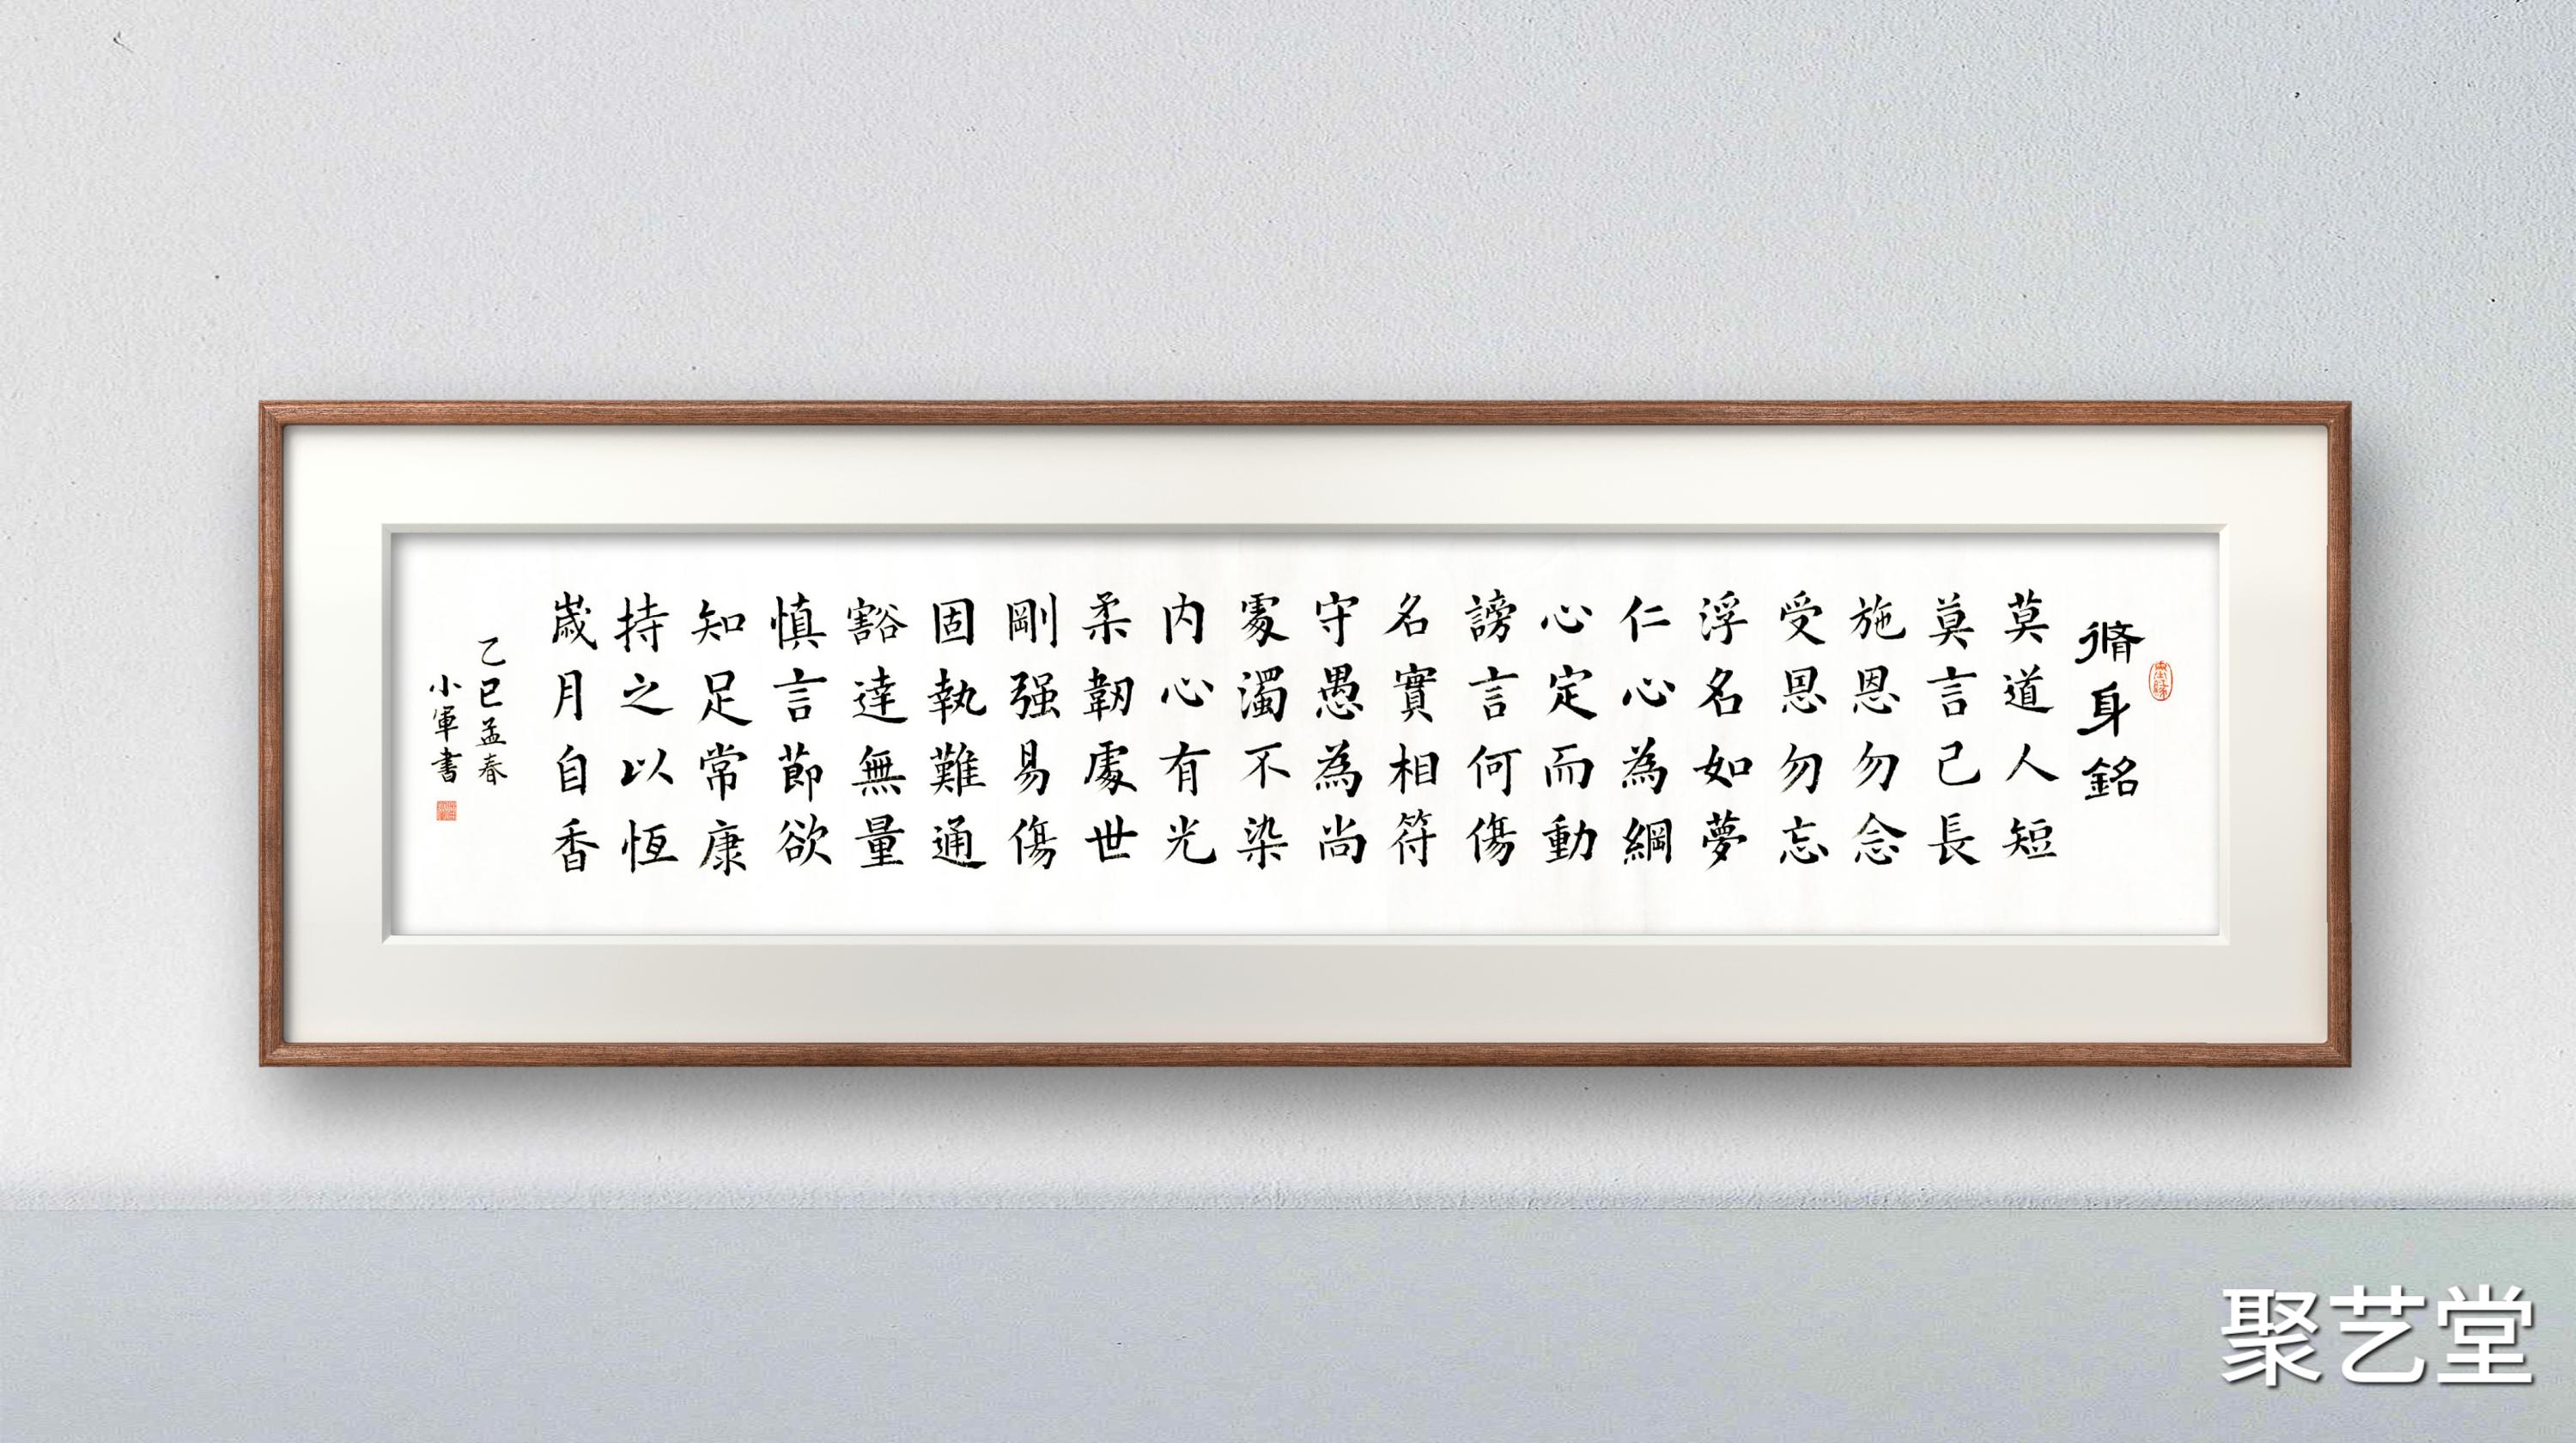 脩身銘
莫道人短
莫言己長
施恩勿念
受恩勿忘
浮名如夢
仁心為綱
心定而動
謗言何傷
名實相符
守愚為尚
處濁不染
内心有光
柔韌處世
剛强易傷
固執難通
豁達無量
慎言節欲
知足常康
持之以恆
歲月自香
乙巳孟春
小軍書
聚艺堂